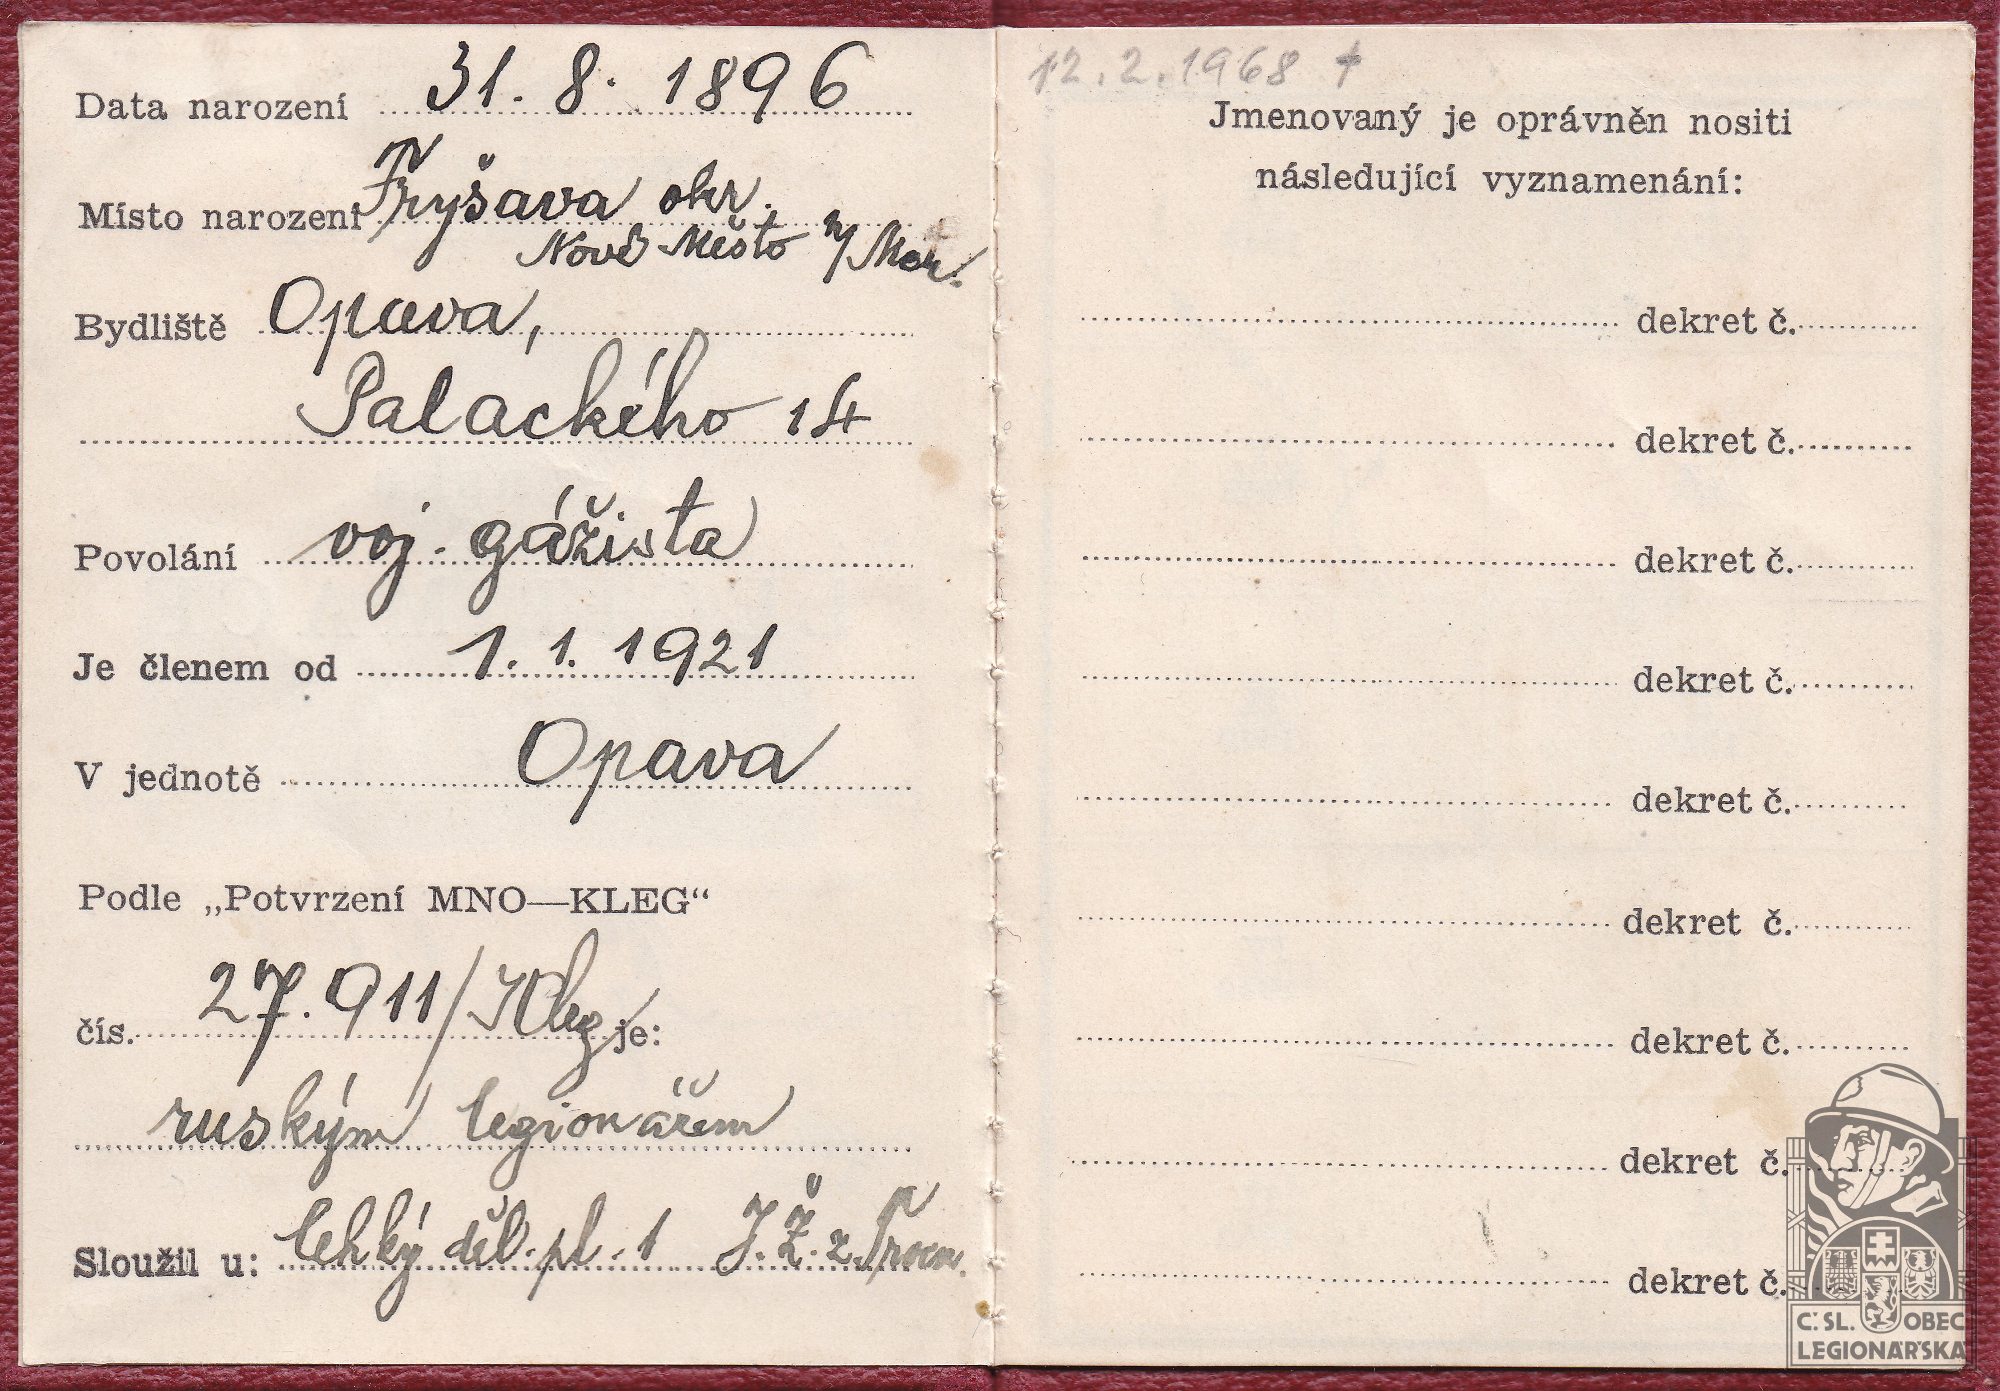 Data narození 31. 8. 1896
Místo narození Fryšava okr.
Nové Město n/Mor.
Bydliště Opava,
Palackého 14
Povolání voj. gážista
Je členem od 1. 1. 1921
V jednotě Opava
Podle „Potvrzení MNO—KLEG“
čís. 27.911/Kleg je:
ruským legionářem
Sloužil u: lehký děl. pl. 1 J. Ž. z Trocn.
12. 2. 1968 †
Jmenovaný je oprávněn nositi
následující vyznamenání:
dekret č.
dekret č.
dekret č.
dekret č.
dekret č.
dekret č.
dekret č.
dekret č.
dekret č.
Č.SL. OBEC
LEGIONÁŘSKÁ